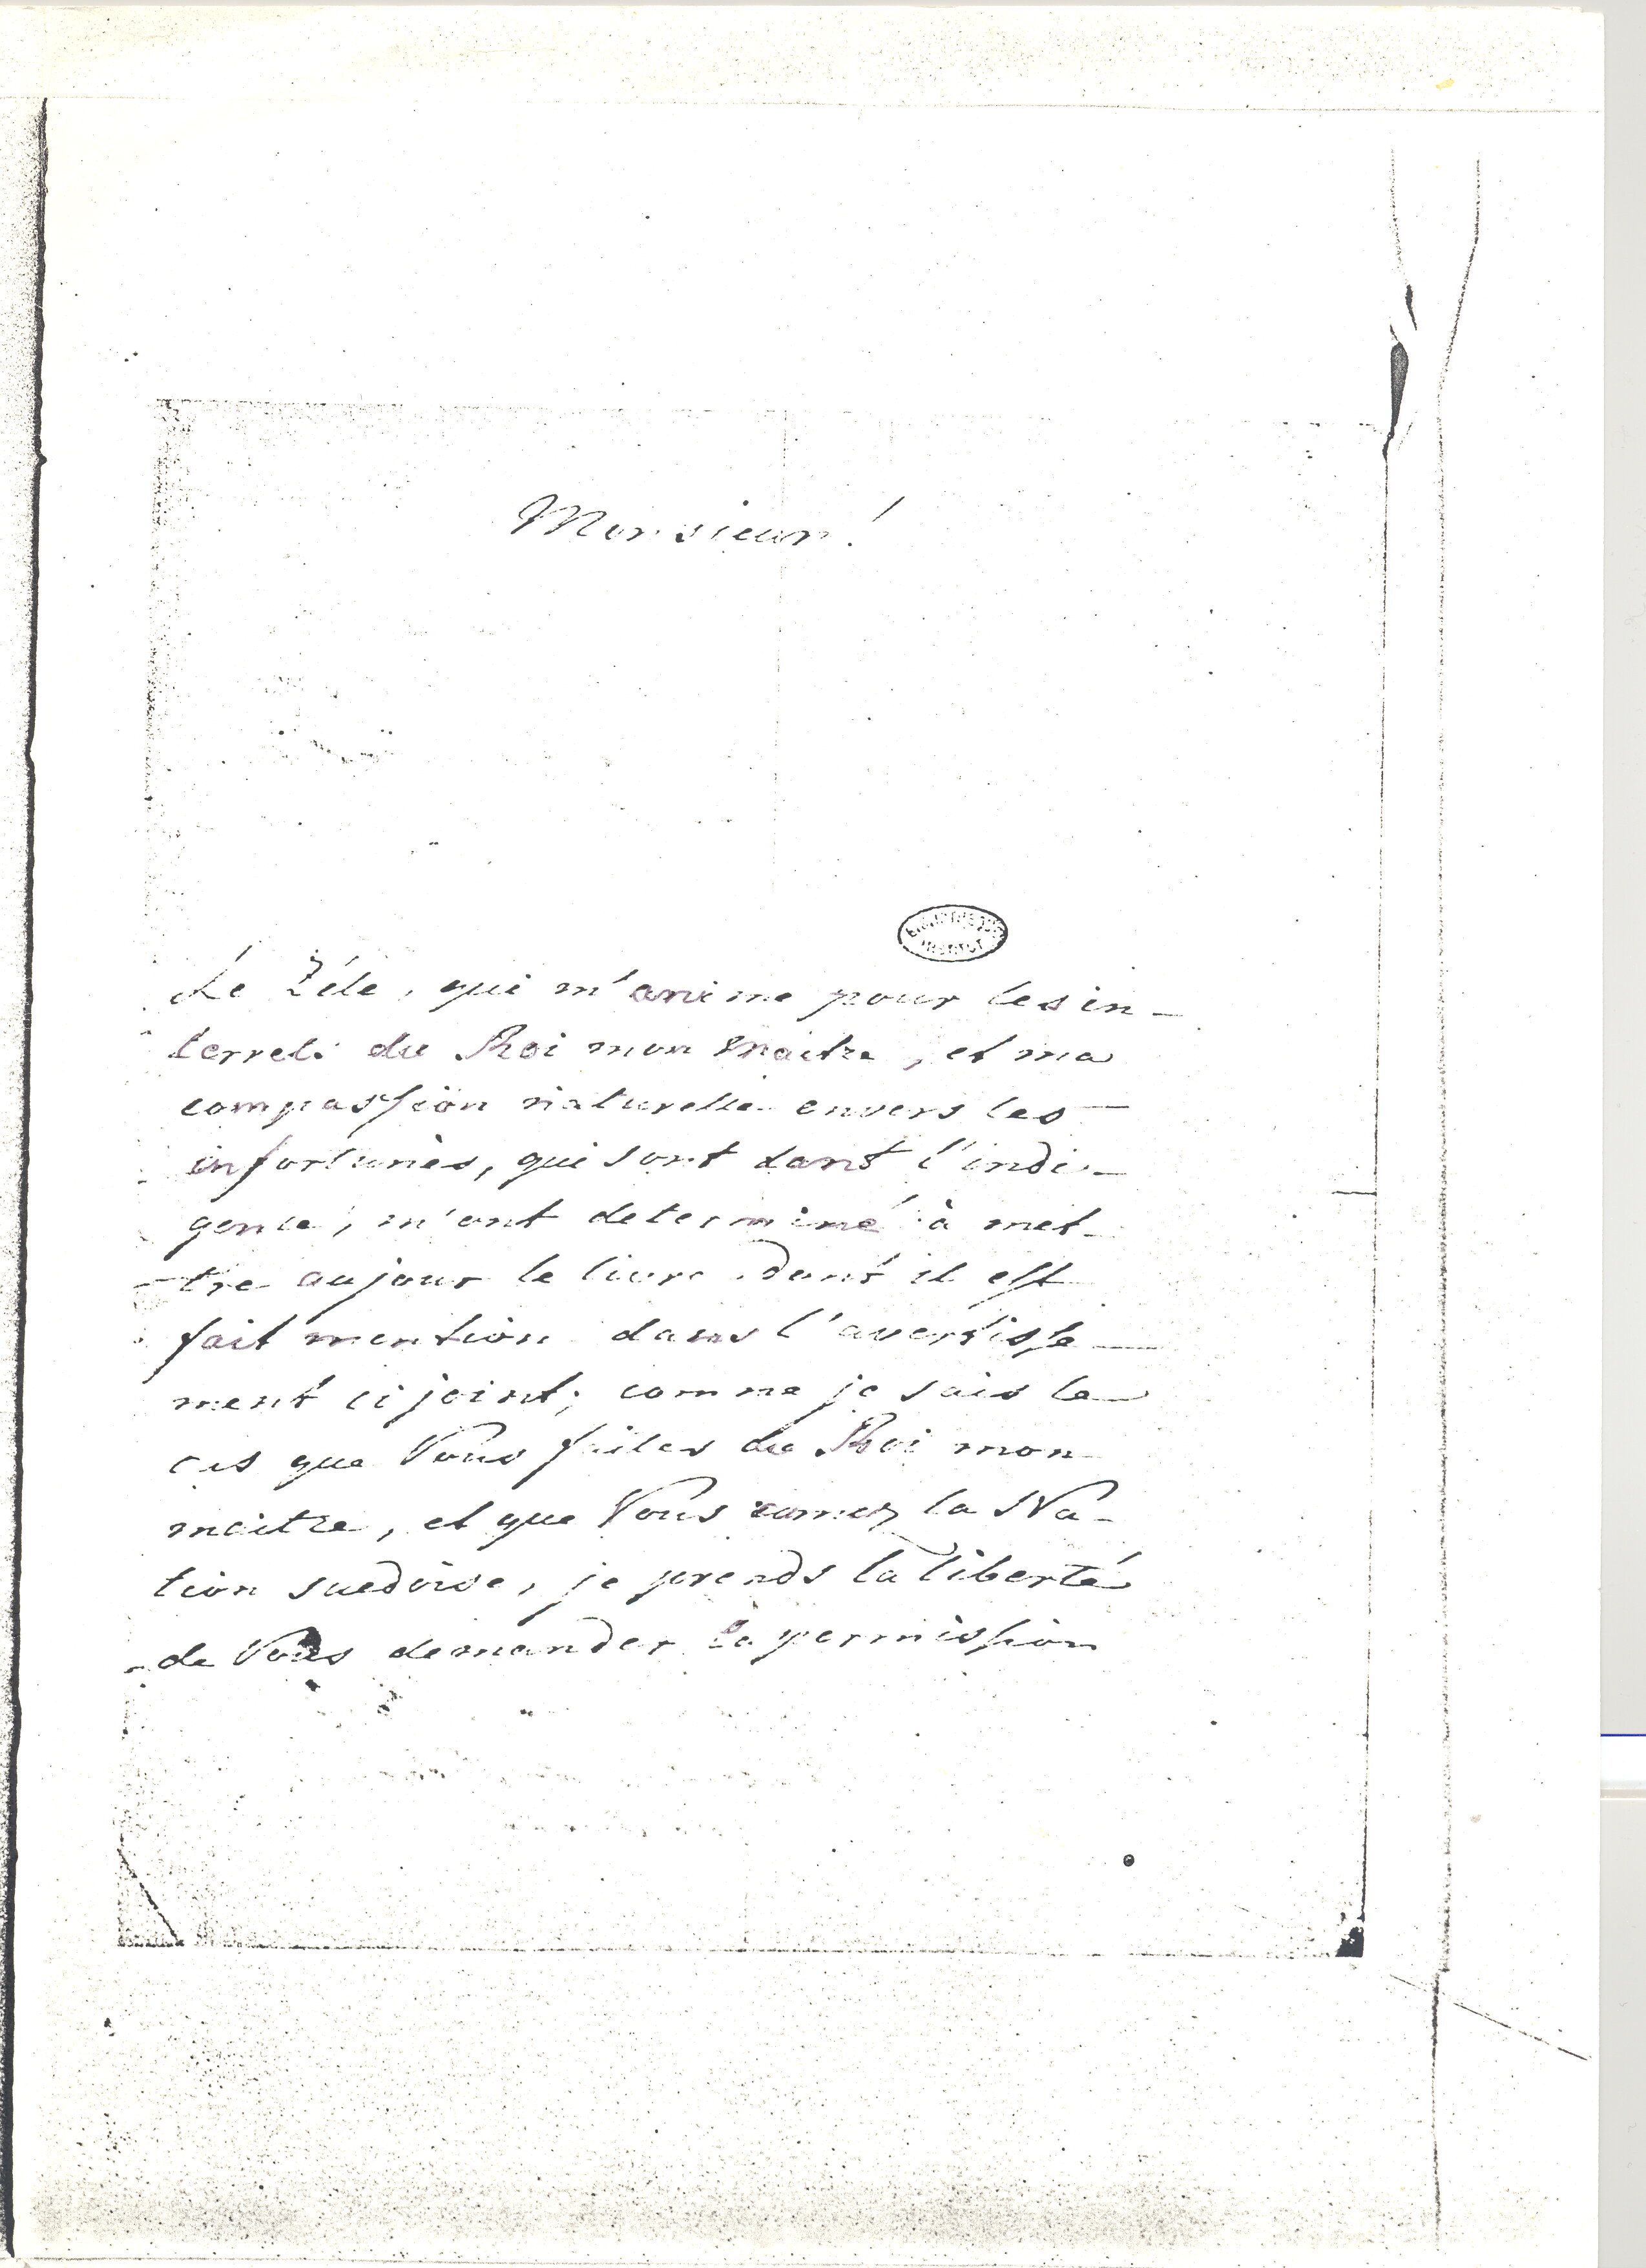 Monsieur!
BIBLIOTHEQUE
INSTITUT
Le Zéle, qui m'anime pour les in-
terrets du Roi mon maitre, et ma
compassion naturelle envers les
infortunès, qui sont dans l'indi-
gence, m'ont determiné à met-
tre au jour le livre dont il est
fait mention dans l'avertisse-
ment ci joint; comme je sais le
cas que Vous faites du Roi mon
maitre, et que Vous aimez la Na-
tion suedoise, je prends la liberté
de Vous demander la permission